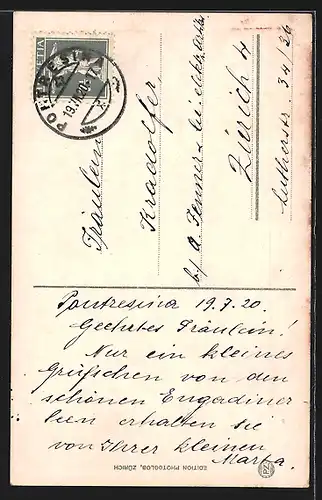 HELVETIA
PONTRESINA
Fräulein
Kradolfer,
b/ A. Jenner
Zürich 4
Lutherstr. 34/36
Pontresina 19.7.20.
Geehrtes Fräulein!
Nur ein kleines
Grüsschen von den
schönen Engadiner
erhalten sie
von Ihrer kleinen
Martha.
EDITION PHOTOGLOB, ZÜRICH
PZ